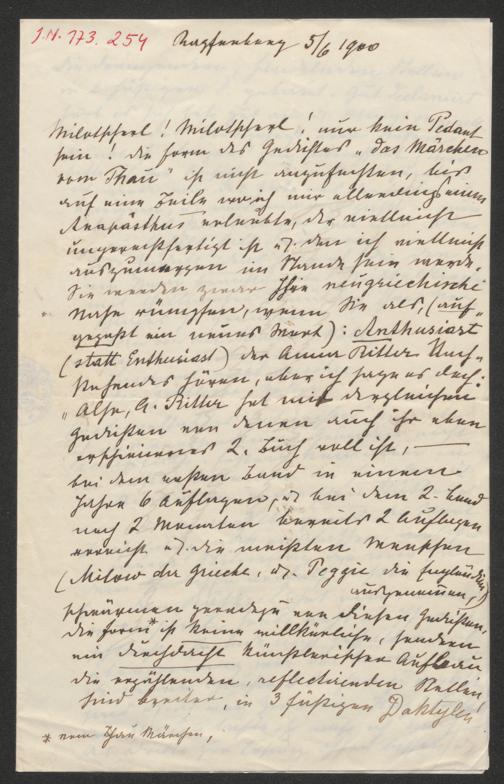 J.N. 173.254
Kapfenberg 5/6 1900
Milotscherl! Milotscherl! nur kein Pedant
sein! die Form des Gedichtes „das Märchen
vom Thau" ist nicht anzufechten, bis
auf eine Zeile wo ich mir allerdings einen
Anapästhus erlaubte, der vielleicht
ungerechtfertigt ist u. den ich vielleicht
auszumerzen im Stande sein werde.
Sie werden zwar Ihre neugriechische
Nase rümpfen, wenn Sie als, (auf-
gepaßt ein neues Wort): Anthusiast
(statt Enthusiast) der Anna Ritter Nach-
stehendes hören, aber ich sage es doch:
„Also, A. Ritter hat mit dergleichen
Gedichten von denen auch ihr eben
erschienenes 2. Buch voll ist, —
bei dem ersten Band in einem
Jahre 6 Auflagen, u. bei dem 2. Band
nach 2 Monaten bereits 2 Auflagen
erreicht u. die meisten Menschen
(Milow der Grieche, u. Peggie die Engländerin
ausgenommen,)
schwärmen geradezu von diesen Gedichten,
die Form* ist keine willkürliche, sondern
ein durchdacht künstlerischer Aufbau
die erzählenden, reflectirenden Stellen
sind breiter, in 3 füßigen Daktylen
* vom Thau Märchen,